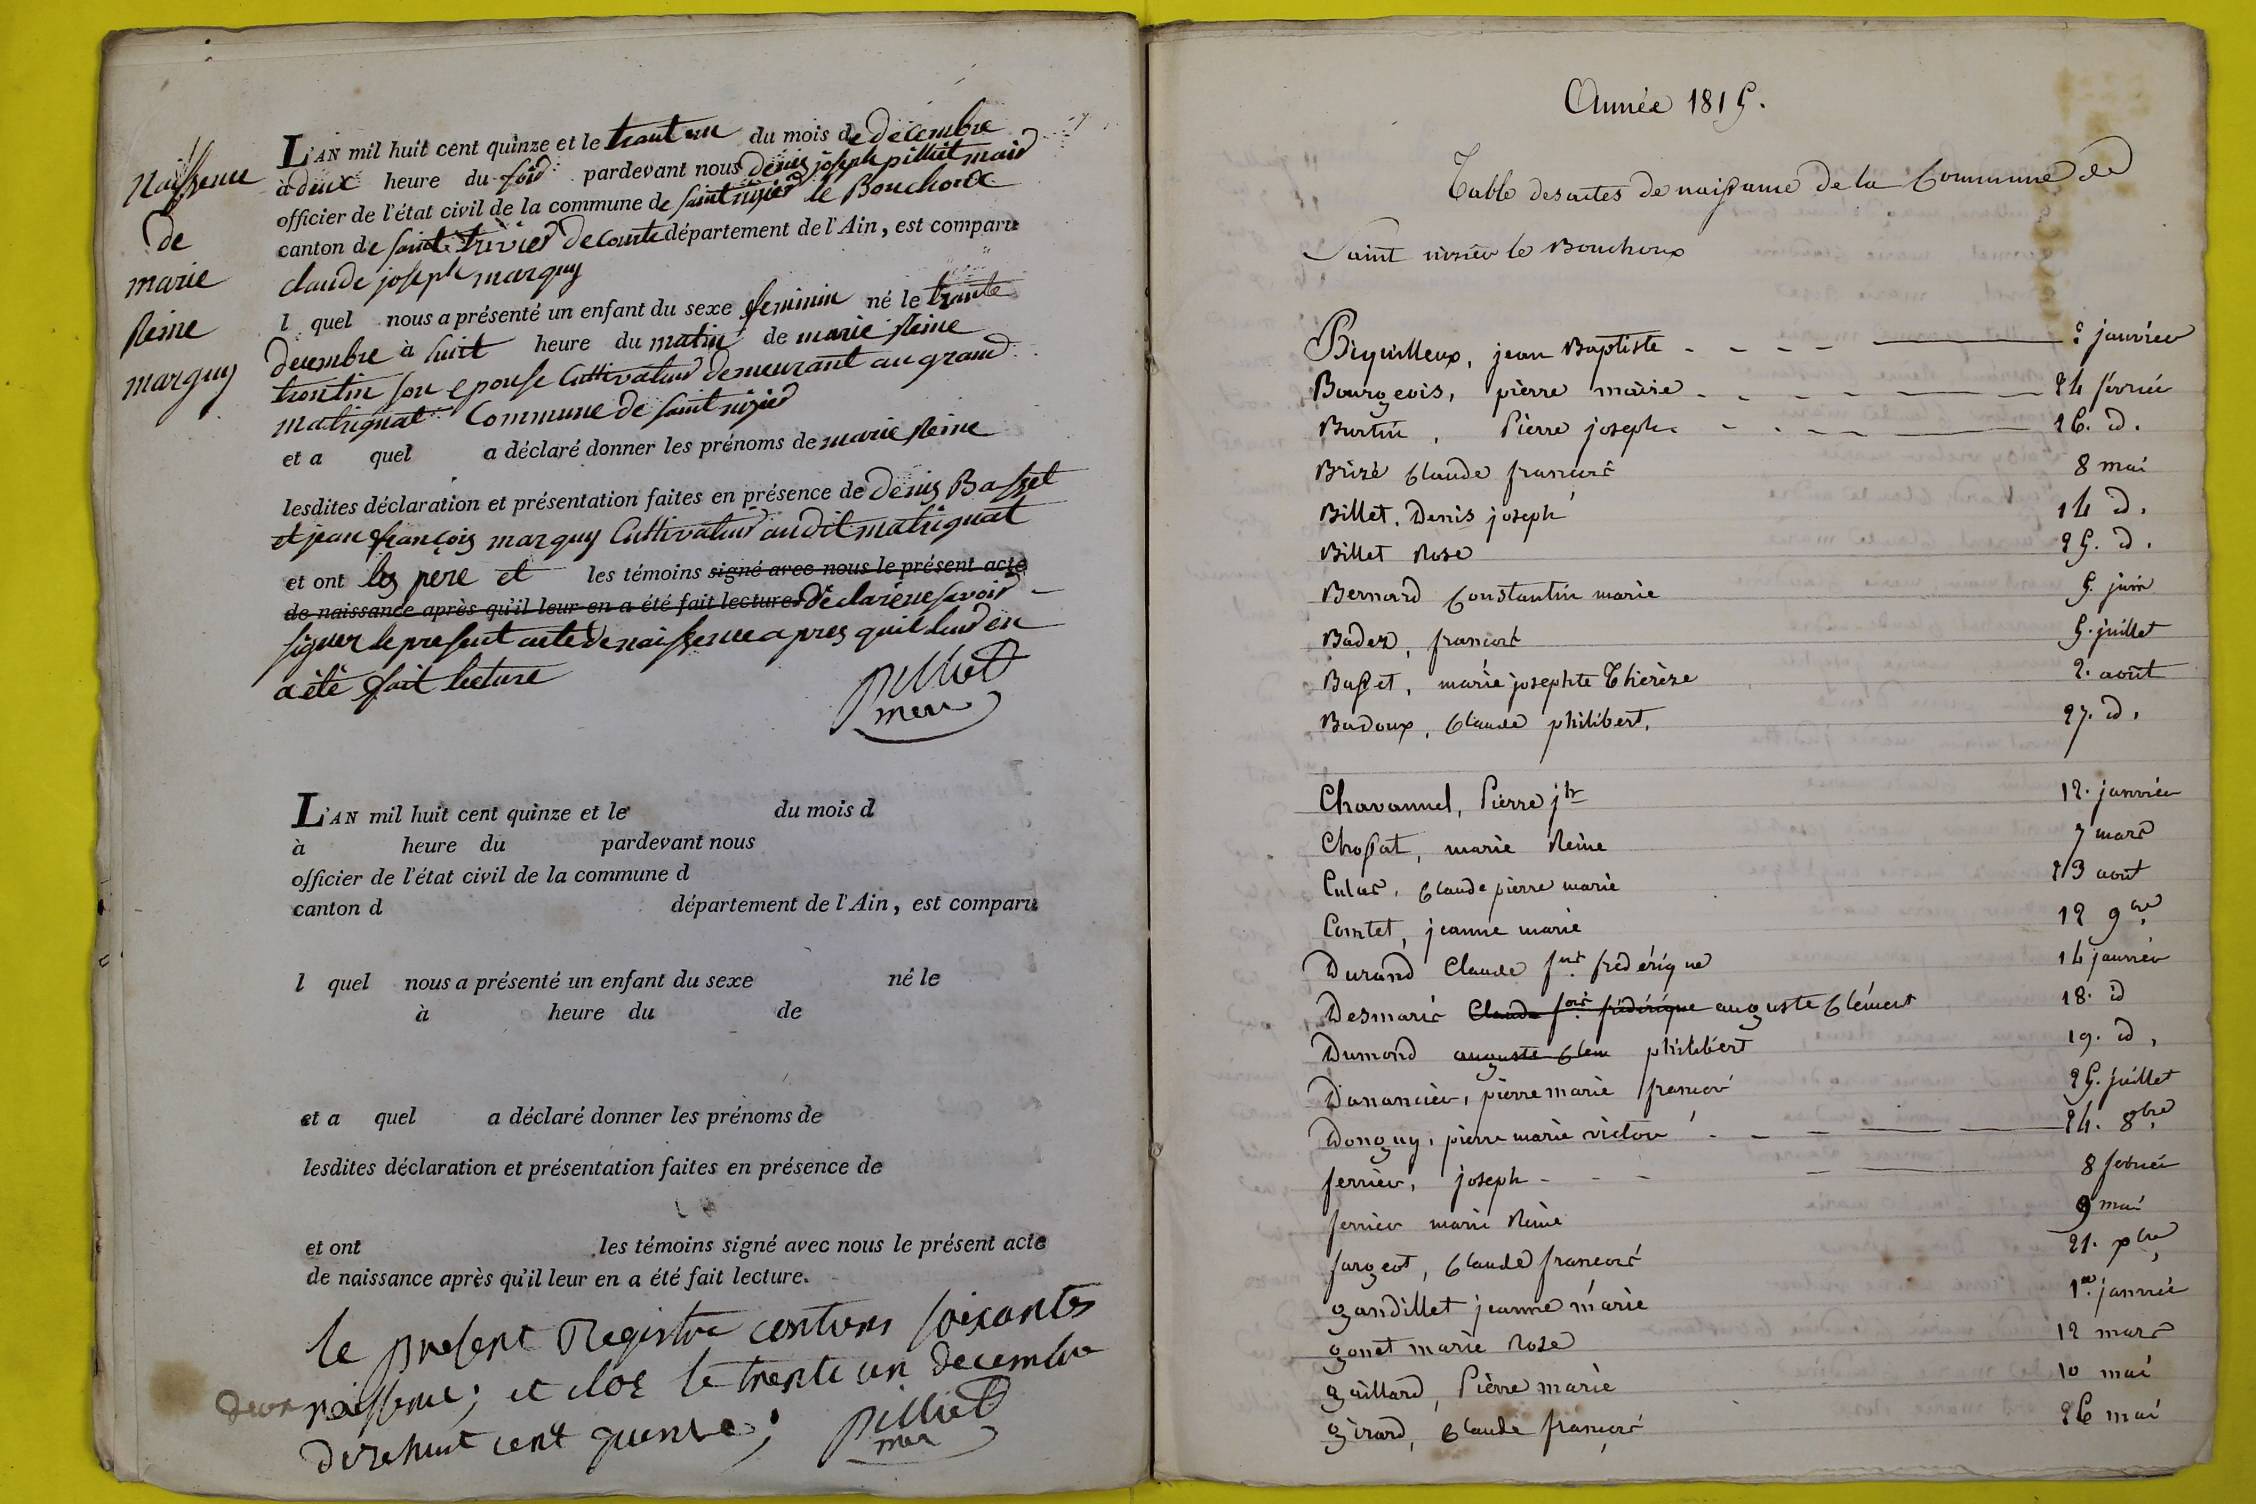 Naissence
de
marie
Reine
marguy
L'AN mil huit cent quinze et le trant un du mois de décembre
à deux heure du soir pardevant nous denis joseph pilliet maire
officier de l'état civil de la commune de saint nizier le Bouchoux
canton de saint trivier de courte département de l'Ain, est comparu
claude joseph marguy
l quel nous a présenté un enfant du sexe feminin né le trante
decembre à huit heure du matin de marie Reine
trontin son epouse Cultivateur demeurant au grand
matrignat Commune de saint nizier
et a quel a déclaré donner les prénoms de marie Reine
lesdites déclaration et présentation faites en présence de denis Basset
et jean françois marguy Cultivateur audit matrignat
et ont les pere et les témoins signé avec nous le présent acte
de naissance après qu'il leur en a été fait lecture déclaré ne savoir
signer le present acte de naissence apres quil leur en
a été fait lecture
pilliet
mere
L'AN mil huit cent quinze et le du mois d
à heure du pardevant nous
officier de l'état civil de la commune d
canton d département de l'Ain, est comparu
l quel nous a présenté un enfant du sexe né le
à heure du de
et a quel a déclaré donner les prénoms de
lesdites déclaration et présentation faites en présence de
et ont les témoins signé avec nous le présent acte
de naissance après qu'il leur en a été fait lecture.
le present Registre contiens soixantes
deux naissence; et clos le trente un decembre
dixe huit cent quinze;
pilliet
mer
Année 1815.
Table des actes de naissance de la Commune de
Saint nizier le Bouchoux
Biguilleux, jean Baptiste 2 janvier
Bourgeois, pierre marie 24 février
Burtin, Pierre joseph 26. id.
Brizé Claude francois 8 mai
Billet, Denis joseph 14 id.
Billet Rose 25. id.
Bernard Constantin marie 5. juin
Badez, francois 5. juillet
Basset, marie josephte Thérèse 2. août
Badoux, Claude philibert, 27. id.
Chavannel, Pierre jh 12. janvier
Chossat, marie Reine 7 mars
Culas, Claude pierre marie 23 août
Comtet, jeanne marie 12 9bre
Durand Claude fois frédérique 14 janvier
Desmaris Claude fois frédérique auguste Clément 18. id
Dumond auguste Clem philibert 19. id,
Dananciev, pierre marie francois 25. juillet
Donguy, pierre marie victor 24. 8bre
ferrier, joseph 8 février
ferrier marie Reine 9 mai
fargeot, Claude francois 21. xbre
gandillet jeanne marie 1er. janvier
gonet marie Rose 12 mars
gaillard, Pierre marie 10 mai
girard, Claude francois 26 mai